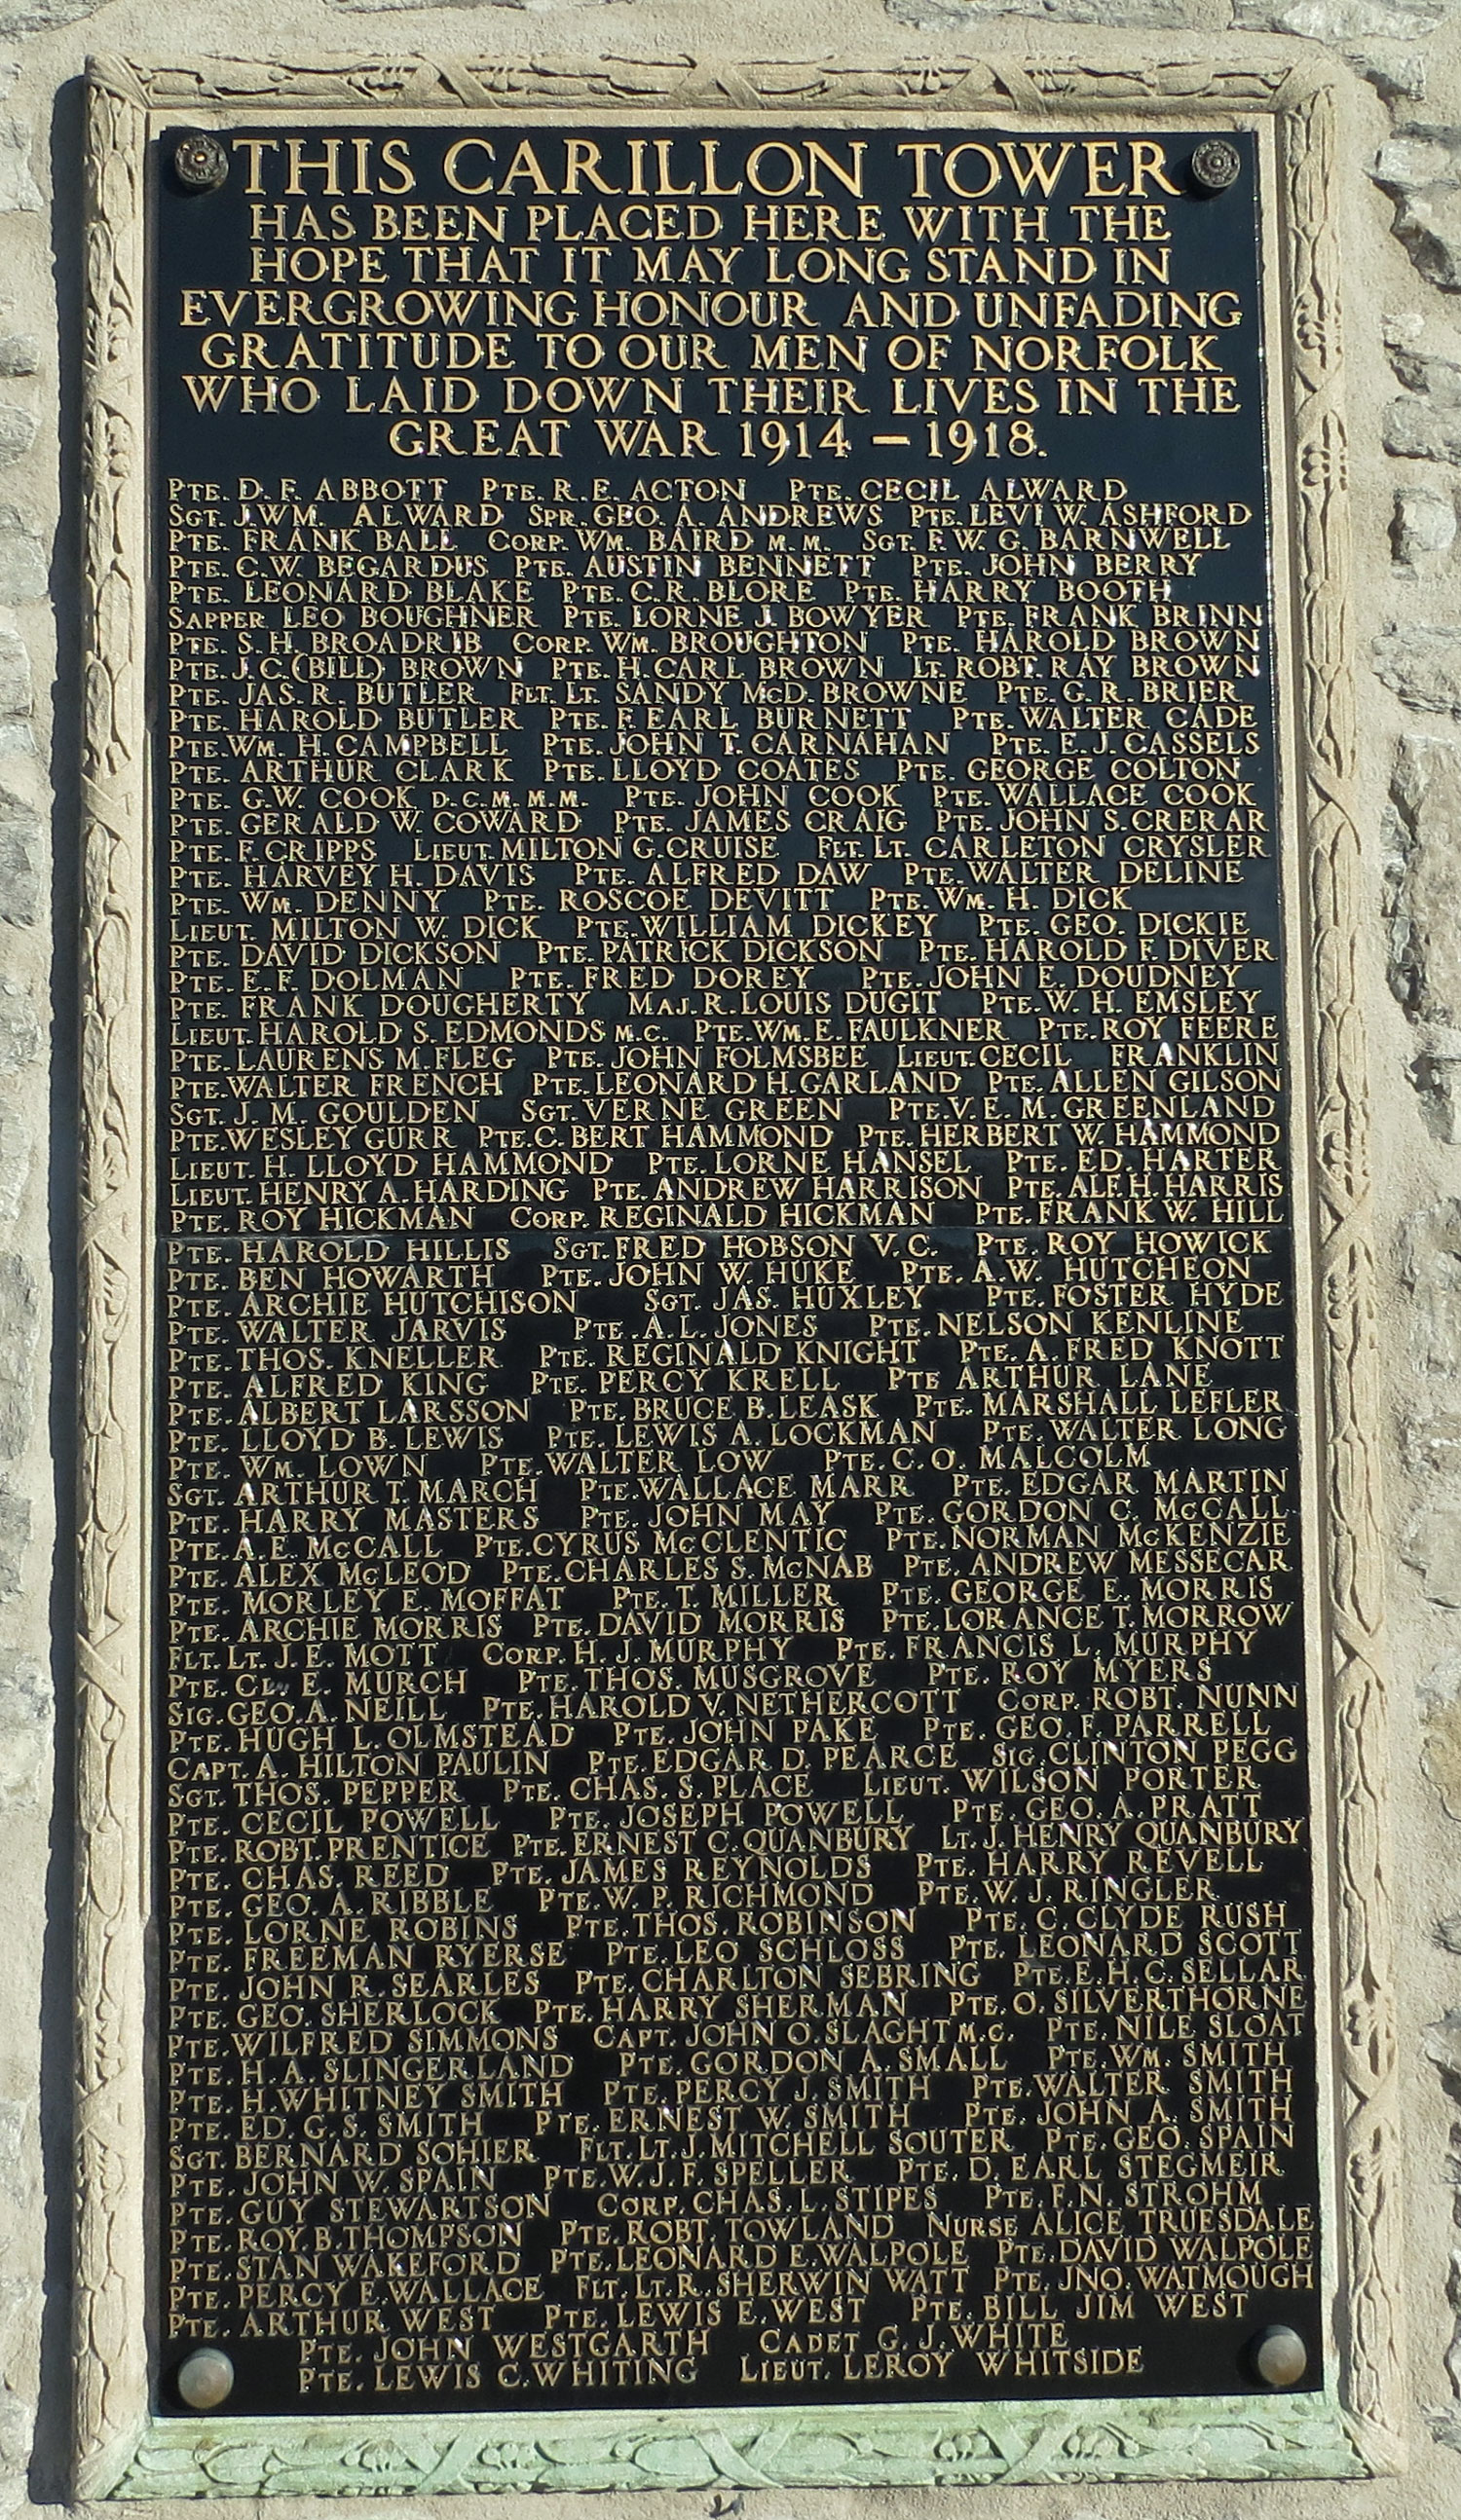 THIS CARILLON TOWER
HAS BEEN PLACED HERE WITH THE
HOPE THAT IT MAY LONG STAND IN
EVERGROWING HONOUR AND UNFADING
GRATITUDE TO OUR MEN OF NORFOLK
WHO LAID DOWN THEIR LIVES IN THE
GREAT WAR 1914 – 1918.
PTE. D. F. ABBOTT PTE. R. E. ACTON PTE. CECIL ALWARD
SGT. J. WM. ALWARD SPR. GEO. A. ANDREWS PTE. LEVI W. ASHFORD
PTE. FRANK BALL CORP. WM. BAIRD M. M. SGT. F. W. G. BARNWELL
PTE. C. W. BEGARDUS PTE. AUSTIN BENNETT PTE. JOHN BERRY
PTE. LEONARD BLAKE PTE. C. R. BLORE PTE. HARRY BOOTH
SAPPER LEO BOUGHNER PTE. LORNE J. BOWYER PTE. FRANK BRINN
PTE. S. H. BROADRIB CORP. WM. BROUGHTON PTE. HAROLD BROWN
PTE. J. C. (BILL) BROWN PTE. H. CARL BROWN LT. ROBT. RAY BROWN
PTE. JAS. R. BUTLER FLT. LT. SANDY McD. BROWNE PTE. G. R. BRIER
PTE. HAROLD BUTLER PTE. F. EARL BURNETT PTE. WALTER CADE
PTE. WM. H. CAMPBELL PTE. JOHN T. CARNAHAN PTE. E. J. CASSELS
PTE. ARTHUR CLARK PTE. LLOYD COATES PTE. GEORGE COLTON
PTE. G. W. COOK D. C. M. M. M. PTE. JOHN COOK PTE. WALLACE COOK
PTE. GERALD W. COWARD PTE. JAMES CRAIG PTE. JOHN S. CRERAR
PTE. F. CRIPPS LIEUT. MILTON G. CRUISE FLT. LT. CARLETON CRYSLER
PTE. HARVEY H. DAVIS PTE. ALFRED DAW PTE. WALTER DELINE
PTE. WM. DENNY PTE. ROSCOE DEVITT PTE. WM. H. DICK
LIEUT. MILTON W. DICK PTE. WILLIAM DICKEY PTE. GEO. DICKIE
PTE. DAVID DICKSON PTE. PATRICK DICKSON PTE. HAROLD F. DIVER
PTE. E. F. DOLMAN PTE. FRED DOREY PTE. JOHN E. DOUDNEY
PTE. FRANK DOUGHERTY MAJ. R. LOUIS DUGIT PTE. W. H. EMSLEY
LIEUT. HAROLD S. EDMONDS M. C. PTE. WM. E. FAULKNER PTE. ROY FEERE
PTE. LAURENS M. FLEG PTE. JOHN FOLMSBEE LIEUT. CECIL FRANKLIN
PTE. WALTER FRENCH PTE. LEONARD H. GARLAND PTE. ALLEN GILSON
SGT. J. M. GOULDEN SGT. VERNE GREEN PTE. V. E. M. GREENLAND
PTE. WESLEY GURR PTE. C. BERT HAMMOND PTE. HERBERT W. HAMMOND
LIEUT. H. LLOYD HAMMOND PTE. LORNE HANSEL PTE. ED. HARTER
LIEUT. HENRY A. HARDING PTE. ANDREW HARRISON PTE. ALF. H. HARRIS
PTE. ROY HICKMAN CORP. REGINALD HICKMAN PTE. FRANK W. HILL
PTE. HAROLD HILLIS SGT. FRED HOBSON V. C. PTE. ROY HOWICK
PTE. BEN HOWARTH PTE. JOHN W. HUKE PTE. A. W. HUTCHEON
PTE. ARCHIE HUTCHISON SGT. JAS. HUXLEY PTE. FOSTER HYDE
PTE. WALTER JARVIS PTE. A. L. JONES PTE. NELSON KENLINE
PTE. THOS. KNELLER PTE. REGINALD KNIGHT PTE. A. FRED KNOTT
PTE. ALFRED KING PTE. PERCY KRELL PTE ARTHUR LANE
PTE. ALBERT LARSSON PTE. BRUCE B. LEASK PTE. MARSHALL LEFLER
PTE. LLOYD B. LEWIS PTE. LEWIS A. LOCKMAN PTE. WALTER LONG
PTE. WM. LOWN PTE. WALTER LOW PTE. C. O. MALCOLM
SGT. ARTHUR T. MARCH PTE. WALLACE MARR PTE. EDGAR MARTIN
PTE. HARRY MASTERS PTE. JOHN MAY PTE. GORDON C. McCALL
PTE. A. E. McCALL PTE. CYRUS McCLENTIC PTE. NORMAN McKENZIE
PTE. ALEX McLEOD PTE. CHARLES S. McNAB PTE. ANDREW MESSECAR
PTE. MORLEY E. MOFFAT PTE. T. MILLER PTE. GEORGE E. MORRIS
PTE. ARCHIE MORRIS PTE. DAVID MORRIS PTE. LORANCE T. MORROW
FLT. LT. J. E. MOTT CORP. H. J. MURPHY PTE. FRANCIS L. MURPHY
PTE. E. MURCH PTE. THOS. MUSGROVE PTE. ROY MYERS
SIG. GEO. A. NEILL PTE. HAROLD V. NETHERCOTT CORP. ROBT. NUNN
PTE. HUGH L. OLMSTEAD PTE. JOHN PAKE PTE. GEO. F. PARRELL
CAPT. A. HILTON PAULIN PTE. EDGAR D. PEARCE SIG. CLINTON PEGG
SGT. THOS. PEPPER PTE. CHAS. S. PLACE LIEUT. WILSON PORTER
PTE. CECIL POWELL PTE. JOSEPH POWELL PTE. GEO. A. PRATT
PTE. ROBT. PRENTICE PTE. ERNEST C. QUANBURY LT. J. HENRY QUANBURY
PTE. CHAS. REED PTE. JAMES REYNOLDS PTE. HARRY REVELL
PTE. GEO. A. RIBBLE PTE. W. P. RICHMOND PTE. W. J. RINGLER
PTE. LORNE ROBINS PTE. THOS. ROBINSON PTE. C. CLYDE RUSH
PTE. FREEMAN RYERSE PTE. LEO SCHLOSS PTE. LEONARD SCOTT
PTE. JOHN R. SEARLES PTE. CHARLTON SEBRING PTE. E. H. C. SELLAR
PTE. GEO. SHERLOCK PTE. HARRY SHERMAN PTE. O. SILVERTHORNE
PTE. WILFRED SIMMONS CAPT. JOHN O. SLAGHT M. C. PTE. NILE SLOAT
PTE. H. A. SLINGERLAND PTE. GORDON A. SMALL PTE. WM. SMITH
PTE. H. WHITNEY SMITH PTE. PERCY J. SMITH PTE. WALTER SMITH
PTE. ED. G. S. SMITH PTE. ERNEST W. SMITH PTE. JOHN A. SMITH
SGT. BERNARD SOHIER FLT. LT. J. MITCHELL SOUTER PTE. GEO. SPAIN
PTE. JOHN W. SPAIN PTE. W. J. F. SPELLER PTE. D. EARL STEGMEIR
PTE. GUY STEWARTSON CORP. CHAS. L. STIPES PTE. F. N. STROHM
PTE. ROY. B. THOMPSON PTE. ROBT. TOWLAND NURSE ALICE TRUESDALE
PTE. STAN WAKEFORD PTE. LEONARD E. WALPOLE PTE. DAVID WALPOLE
PTE. PERCY E. WALLACE FLT. LT. R. SHERWIN WATT PTE. JNO. WATMOUGH
PTE. ARTHUR WEST PTE. LEWIS E. WEST PTE. BILL JIM WEST
PTE. JOHN WESTGARTH CADET G. J. WHITE
PTE. LEWIS C. WHITING LIEUT. LEROY WHITSIDE